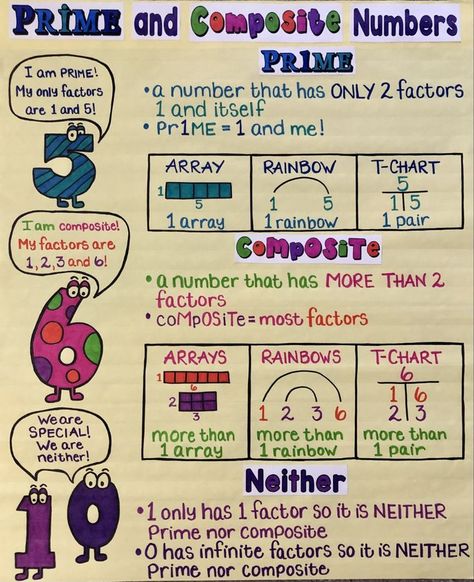 PRIME and Composite Numbers
I am PRIME!
My only factors
are 1 and 5!
5
PR1ME
•a number that has ONLY 2 factors
1 and itself
• Pr1ME = 1 and me!
ARRAY
1
5
1 array
RAINBOW
1 5
1 rainbow
T-CHART
5
1 5
1 pair
I am composite!
My factors are
1, 2, 3 and 6!
6
COMPOSITE
• a number that has MORE THAN 2
factors
• coMpOSiTe = most factors
ARRAYS
1
6
2
3
more than
1 array
RAINBOWS
1 2 3 6
more than
1 rainbow
T-CHART
6
1 6
2 3
more than
1 pair
We are
SPECIAL!
We are
neither!
1 0
Neither
•1 only has 1 factor so it is NEITHER
Prime nor composite
•0 has infinite factors so it is NEITHER
Prime nor composite